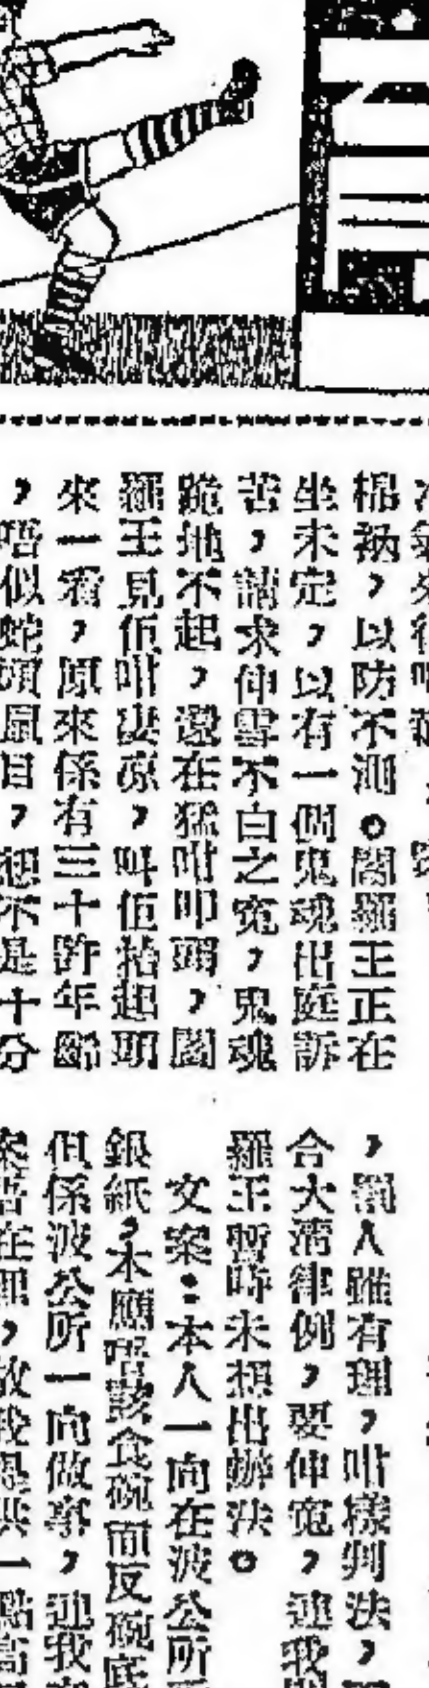 棉衲，以防不測。閻羅王正在
坐未定，以有一個鬼魂出庭訴
苦，請求伸雪不白之冤，鬼魂
跪地不起，還在猛咁叩頭，閻
羅王見佢咁凄凉，叫佢抬起頭
來一看，原來係有三十許年齡
，唔似蛇頭鼠目，想不是十分
，劉人雖有理，咁樣判法，
合大清律例，要伸冤，連我
羅王暫時未想出辦法。
文案：本人一向在波公所
銀紙，本應唔該食碗面反碗底
但係波公所一向做事，連我